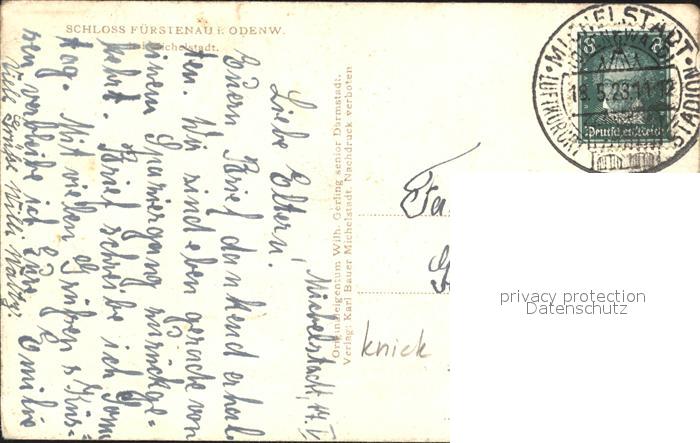 SCHLOSS FÜRSTENAU i. ODENW.
bei Michelstadt.
Michelstadt, 17. V.
Liebe Eltern!
Euern Brief dankend erhal-
ten. Wir sind eben gerade von
einem Spaziergang zurückge-
kehrt. Brief schreibe ich Sonn-
tag. Mit vielen Grüßen & Küs-
sen verbleibe ich Eure Emilie
Viele Grüße Willi
Originaleigentum Wilh. Gerling senior Darmstadt.
Verlag: Karl Bauer Michelstadt. Nachdruck verboten
MICHELSTADT
18.5.28.11-12
Deutsches Reich
Fa
knick
privacy protection
Datenschutz